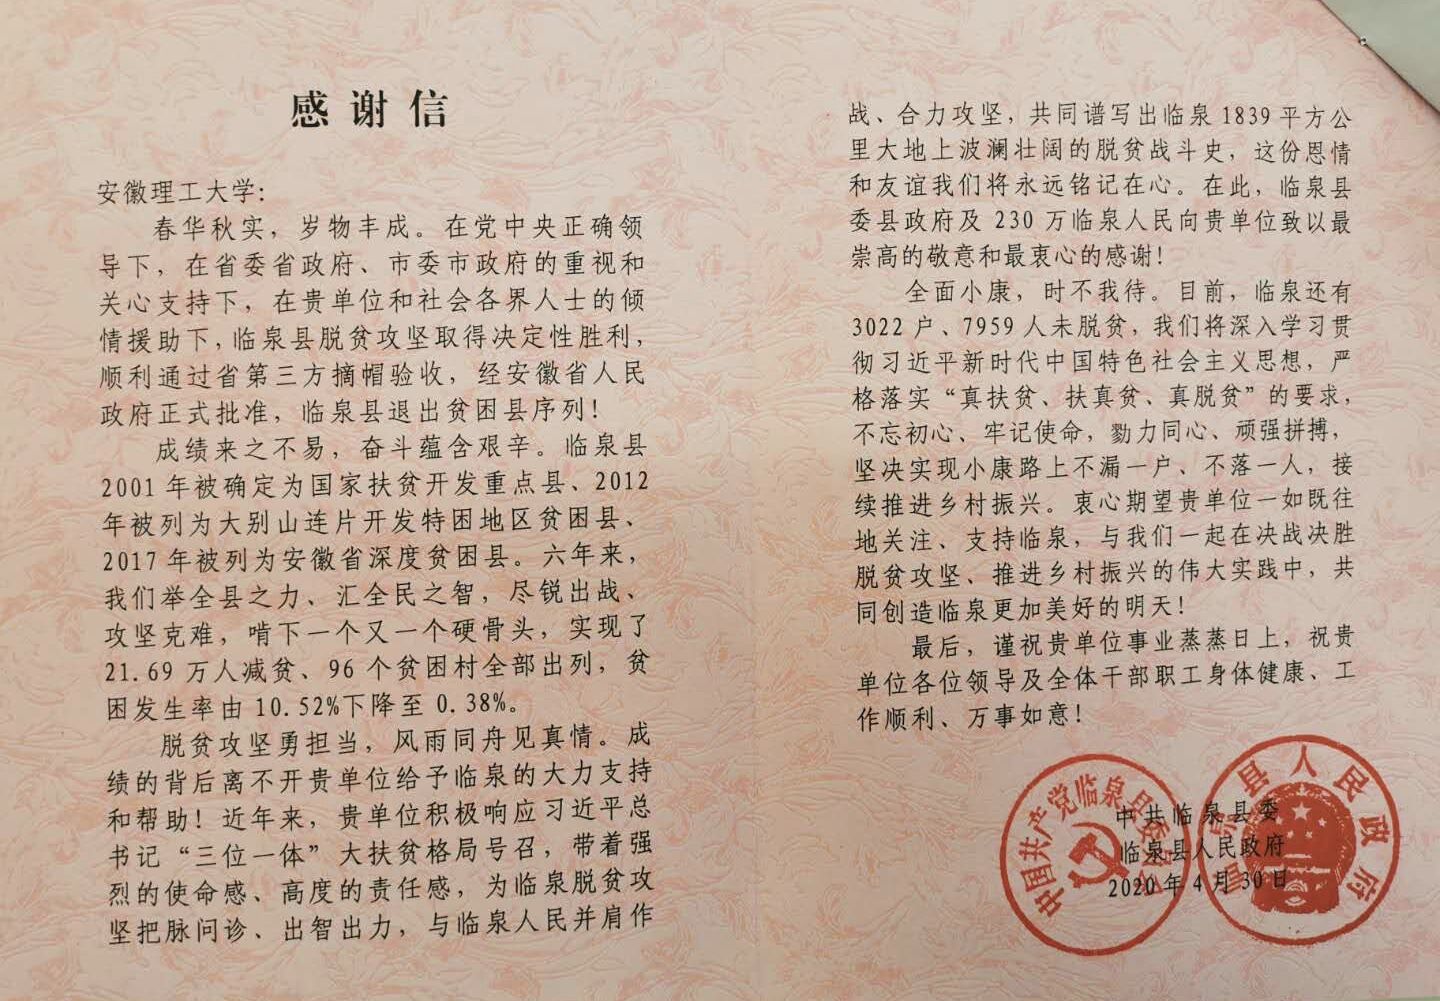 感谢信
安徽理工大学：
春华秋实，岁物丰成。在党中央正确领
导下，在省委省政府、市委市政府的重视和
关心支持下，在贵单位和社会各界人士的倾
情援助下，临泉县脱贫攻坚取得决定性胜利，
顺利通过省第三方摘帽验收，经安徽省人民
政府正式批准，临泉县退出贫困县序列！
成绩来之不易，奋斗蕴含艰辛。临泉县
2001年被确定为国家扶贫开发重点县、2012
年被列为大别山连片开发特困地区贫困县、
2017年被列为安徽省深度贫困县。六年来，
我们举全县之力、汇全民之智，尽锐出战、
攻坚克难，啃下一个又一个硬骨头，实现了
21.69万人减贫、96个贫困村全部出列，贫
困发生率由10.52%下降至0.38%。
脱贫攻坚勇担当，风雨同舟见真情。成
绩的背后离不开贵单位给予临泉的大力支持
和帮助！近年来，贵单位积极响应习近平总
书记“三位一体”大扶贫格局号召，带着强
烈的使命感、高度的责任感，为临泉脱贫攻
坚把脉问诊、出智出力，与临泉人民并肩作
战、合力攻坚，共同谱写出临泉1839平方公
里大地上波澜壮阔的脱贫战斗史，这份恩情
和友谊我们将永远铭记在心。在此，临泉县
委县政府及230万临泉人民向贵单位致以最
崇高的敬意和最衷心的感谢！
全面小康，时不我待。目前，临泉还有
3022户、7959人未脱贫，我们将深入学习贯
彻习近平新时代中国特色社会主义思想，严
格落实“真扶贫、扶真贫、真脱贫”的要求，
不忘初心、牢记使命，勠力同心、顽强拼搏，
坚决实现小康路上不漏一户、不落一人，接
续推进乡村振兴。衷心期望贵单位一如既往
地关注、支持临泉，与我们一起在决战决胜
脱贫攻坚、推进乡村振兴的伟大实践中，共
同创造临泉更加美好的明天！
最后，谨祝贵单位事业蒸蒸日上，祝贵
单位各位领导及全体干部职工身体健康、工
作顺利、万事如意！
中共临泉县委
临泉县人民政府
2020年4月30日
中国共产党临泉县委员会
临泉县人民政府